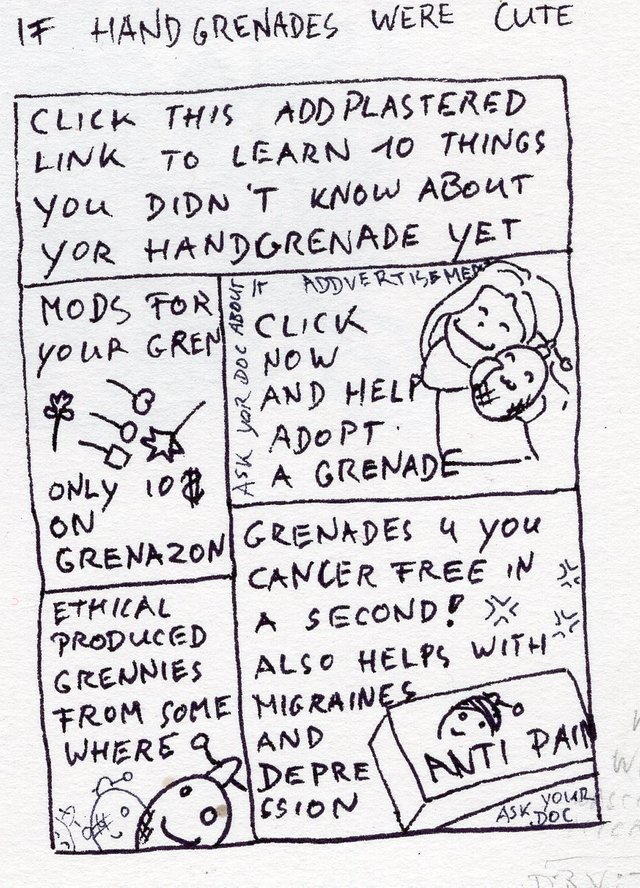 IF HANDGRENADES WERE CUTE
CLICK THIS ADDPLASTERED
LINK TO LEARN 10 THINGS
YOU DIDN'T KNOW ABOUT
YOR HANDGRENADE YET
MODS FOR
YOUR GREN
ONLY 10$
ON
GRENAZON
ASK YOR DOC ABOUT IT
ADDVERTISEMENT
CLICK
NOW
AND HELP
ADOPT
A GRENADE
ETHICAL
PRODUCED
GRENNIES
FROM SOME
WHERE
GRENADES 4 YOU
CANCER FREE IN
A SECOND!
ALSO HELPS WITH
MIGRAINES
AND
DEPRE
SSION
ANTI PAIN
ASK YOUR
DOC